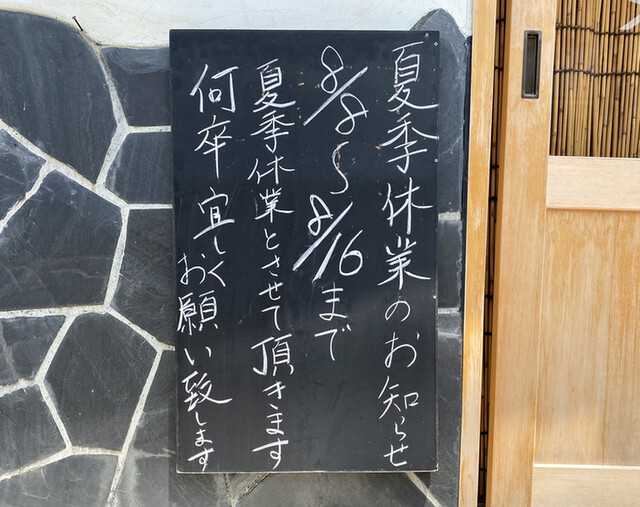 夏季休業のお知らせ
8/8〜8/16まで
夏季休業とさせて頂きます
何卒宜しく
お願い致します